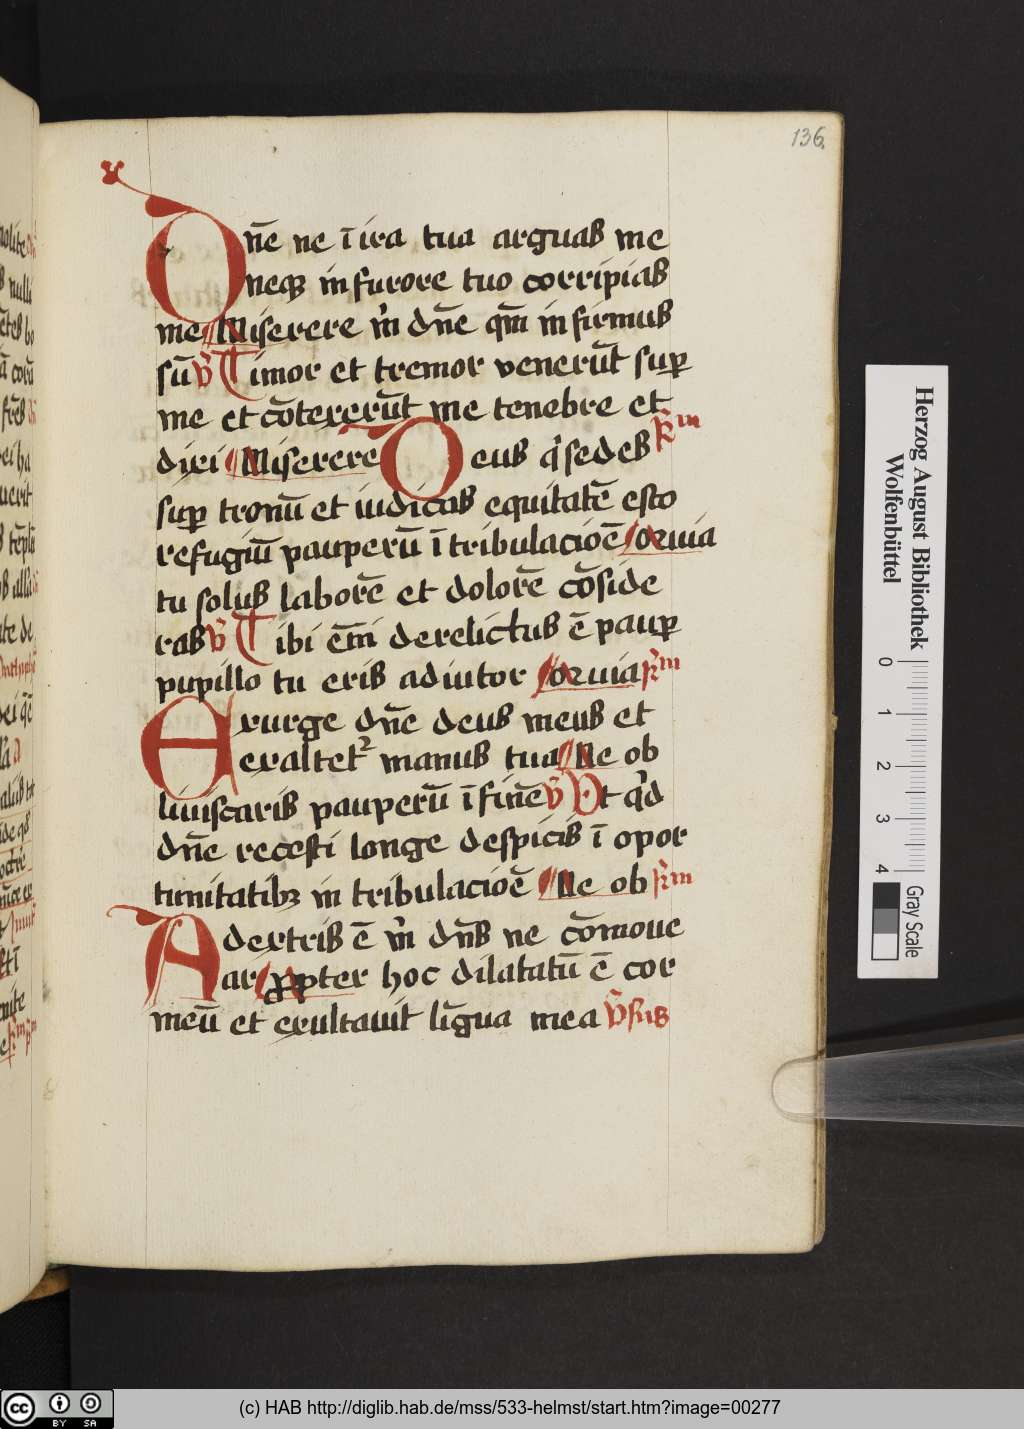 136.
Dn̄e ne ī ira tua arguas me
neqꝫ in furore tuo corripias
me Miserere m̄ dn̄e qm̄ infirmus
sū v̄ Timor et tremor venerūt suꝑ
me et cōtexerūt me tenebre et
dixi Miserere Deus q̄ sedes R̄m
suꝑ tronū et iudicas equitatē esto
refugiū pauperū ī tribulacioē Q̄ uia
tu solus laborē et dolorē cōside
ras v̄ Tibi em̄ derelictus ē pauꝑ
pupillo tu eris adiutor Q̄ uia R̄m
Exurge dn̄e deus meus et
exaltet᷑ manus tua Ne ob
liuiscaris pauperū ī finē v̄ Ut q̄d
dn̄e recesti longe despicis ī opor
tunitatibꝫ in tribulacioē Ne ob R̄m
A dextris ē m̄ dn̄s ne cōmoue
ar Ꝓpter hoc dilatatū ē cor
meū et exultauit līgua mea v̄sus
Herzog August Bibliothek
Wolfenbüttel
0 1 2 3 4
Gray Scale
cc BY SA
(c) HAB http://diglib.hab.de/mss/533-helmst/start.htm?image=00277